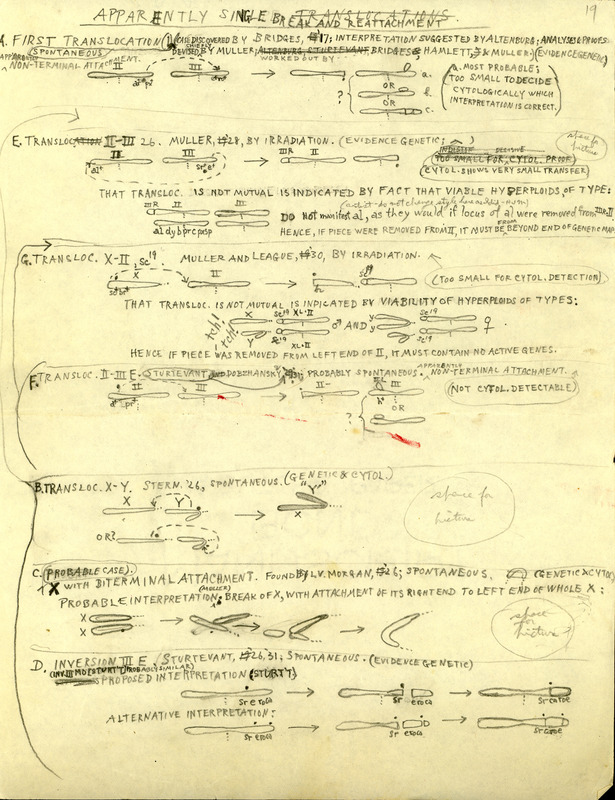 19
APPARENTLY SINGLE BREAK AND REATTACHMENT TRANSLOCATIONS.
A. FIRST TRANSLOCATION (DISCOVERED BY BRIDGES, '17; INTERPRETATION SUGGESTED BY ALTENBURG; ANALYSIS & PROOFS
SPONTANEOUS DEVISED CHIEFLY BY MULLER; ALTENBURG, STURTEVANT BRIDGES, HAMLETT, & MULLER.) (EVIDENCE GENETIC)
APPARENTLY NON-TERMINAL ATTACHMENT. WORKED OUT BY
II III
a.
OR
b.
OR
c.
?
a. MOST PROBABLE;
TOO SMALL TO DECIDE
CYTOLOGICALLY WHICH
INTERPRETATION IS CORRECT.
E. TRANSLOCATION II-III 26. MULLER, '28, BY IRRADIATION. (EVIDENCE GENETIC;
space for picture
II III III R II
TOO SMALL FOR CYTOL. PROOF
CYTOL. SHOWS VERY SMALL TRANSFER
THAT TRANSLOC. IS NOT MUTUAL IS INDICATED BY FACT THAT VIABLE HYPERPLOIDS OF TYPE:
III R II III
al dy b pr c px sp
DO Not manifest al, as they would if locus of al were removed from II
HENCE, IF PIECE WERE REMOVED FROM II, IT MUST BE FROM BEYOND END OF GENETIC MAP
G. TRANSLOC. X-II, Sc19 MULLER AND LEAGUE, '30, BY IRRADIATION.
X II sc19
(TOO SMALL FOR CYTOL. DETECTION)
THAT TRANSLOC. IS NOT MUTUAL IS INDICATED BY VIABILITY OF HYPERPLOIDS OF TYPES:
tch! X Sc19 XL·II ♂ AND y Sc19 ♀.
tch! Y Sc19 XL·II y Sc19
HENCE IF PIECE WAS REMOVED FROM LEFT END OF II, IT MUST CONTAIN NO ACTIVE GENES.
F. TRANSLOC. II-III E. STURTEVANT AND DOBZHANSKY, '31; PROBABLY SPONTANEOUS. APPARENTLY NON-TERMINAL ATTACHMENT.
II III II- III
OR
?
(NOT CYTOL. DETECTABLE)
B. TRANSLOC. X-Y. STERN '26, SPONTANEOUS. (GENETIC & CYTOL.)
X Y "Y"
X
OR?
space for picture
C. (PROBABLE CASE).
X WITH BITERMINAL ATTACHMENT. FOUND BY L.V. MORGAN, '26; SPONTANEOUS. (GENETIC & CYTOL)
(MULLER)
PROBABLE INTERPRETATION: BREAK OF X, WITH ATTACHMENT OF ITS RIGHT END TO LEFT END OF WHOLE X:
X
X
space for picture
D. INVERSION III E. STURTEVANT, '26, 31; SPONTANEOUS. (EVIDENCE GENETIC)
(INV. III MOESTURI PROBABLY SIMILAR)
PROPOSED INTERPRETATION (STURT'T)
Sr e ro ca Sr e ro ca Sr ca ro e
ALTERNATIVE INTERPRETATION:
Sr e ro ca Sr e ro ca Sr ca ro e